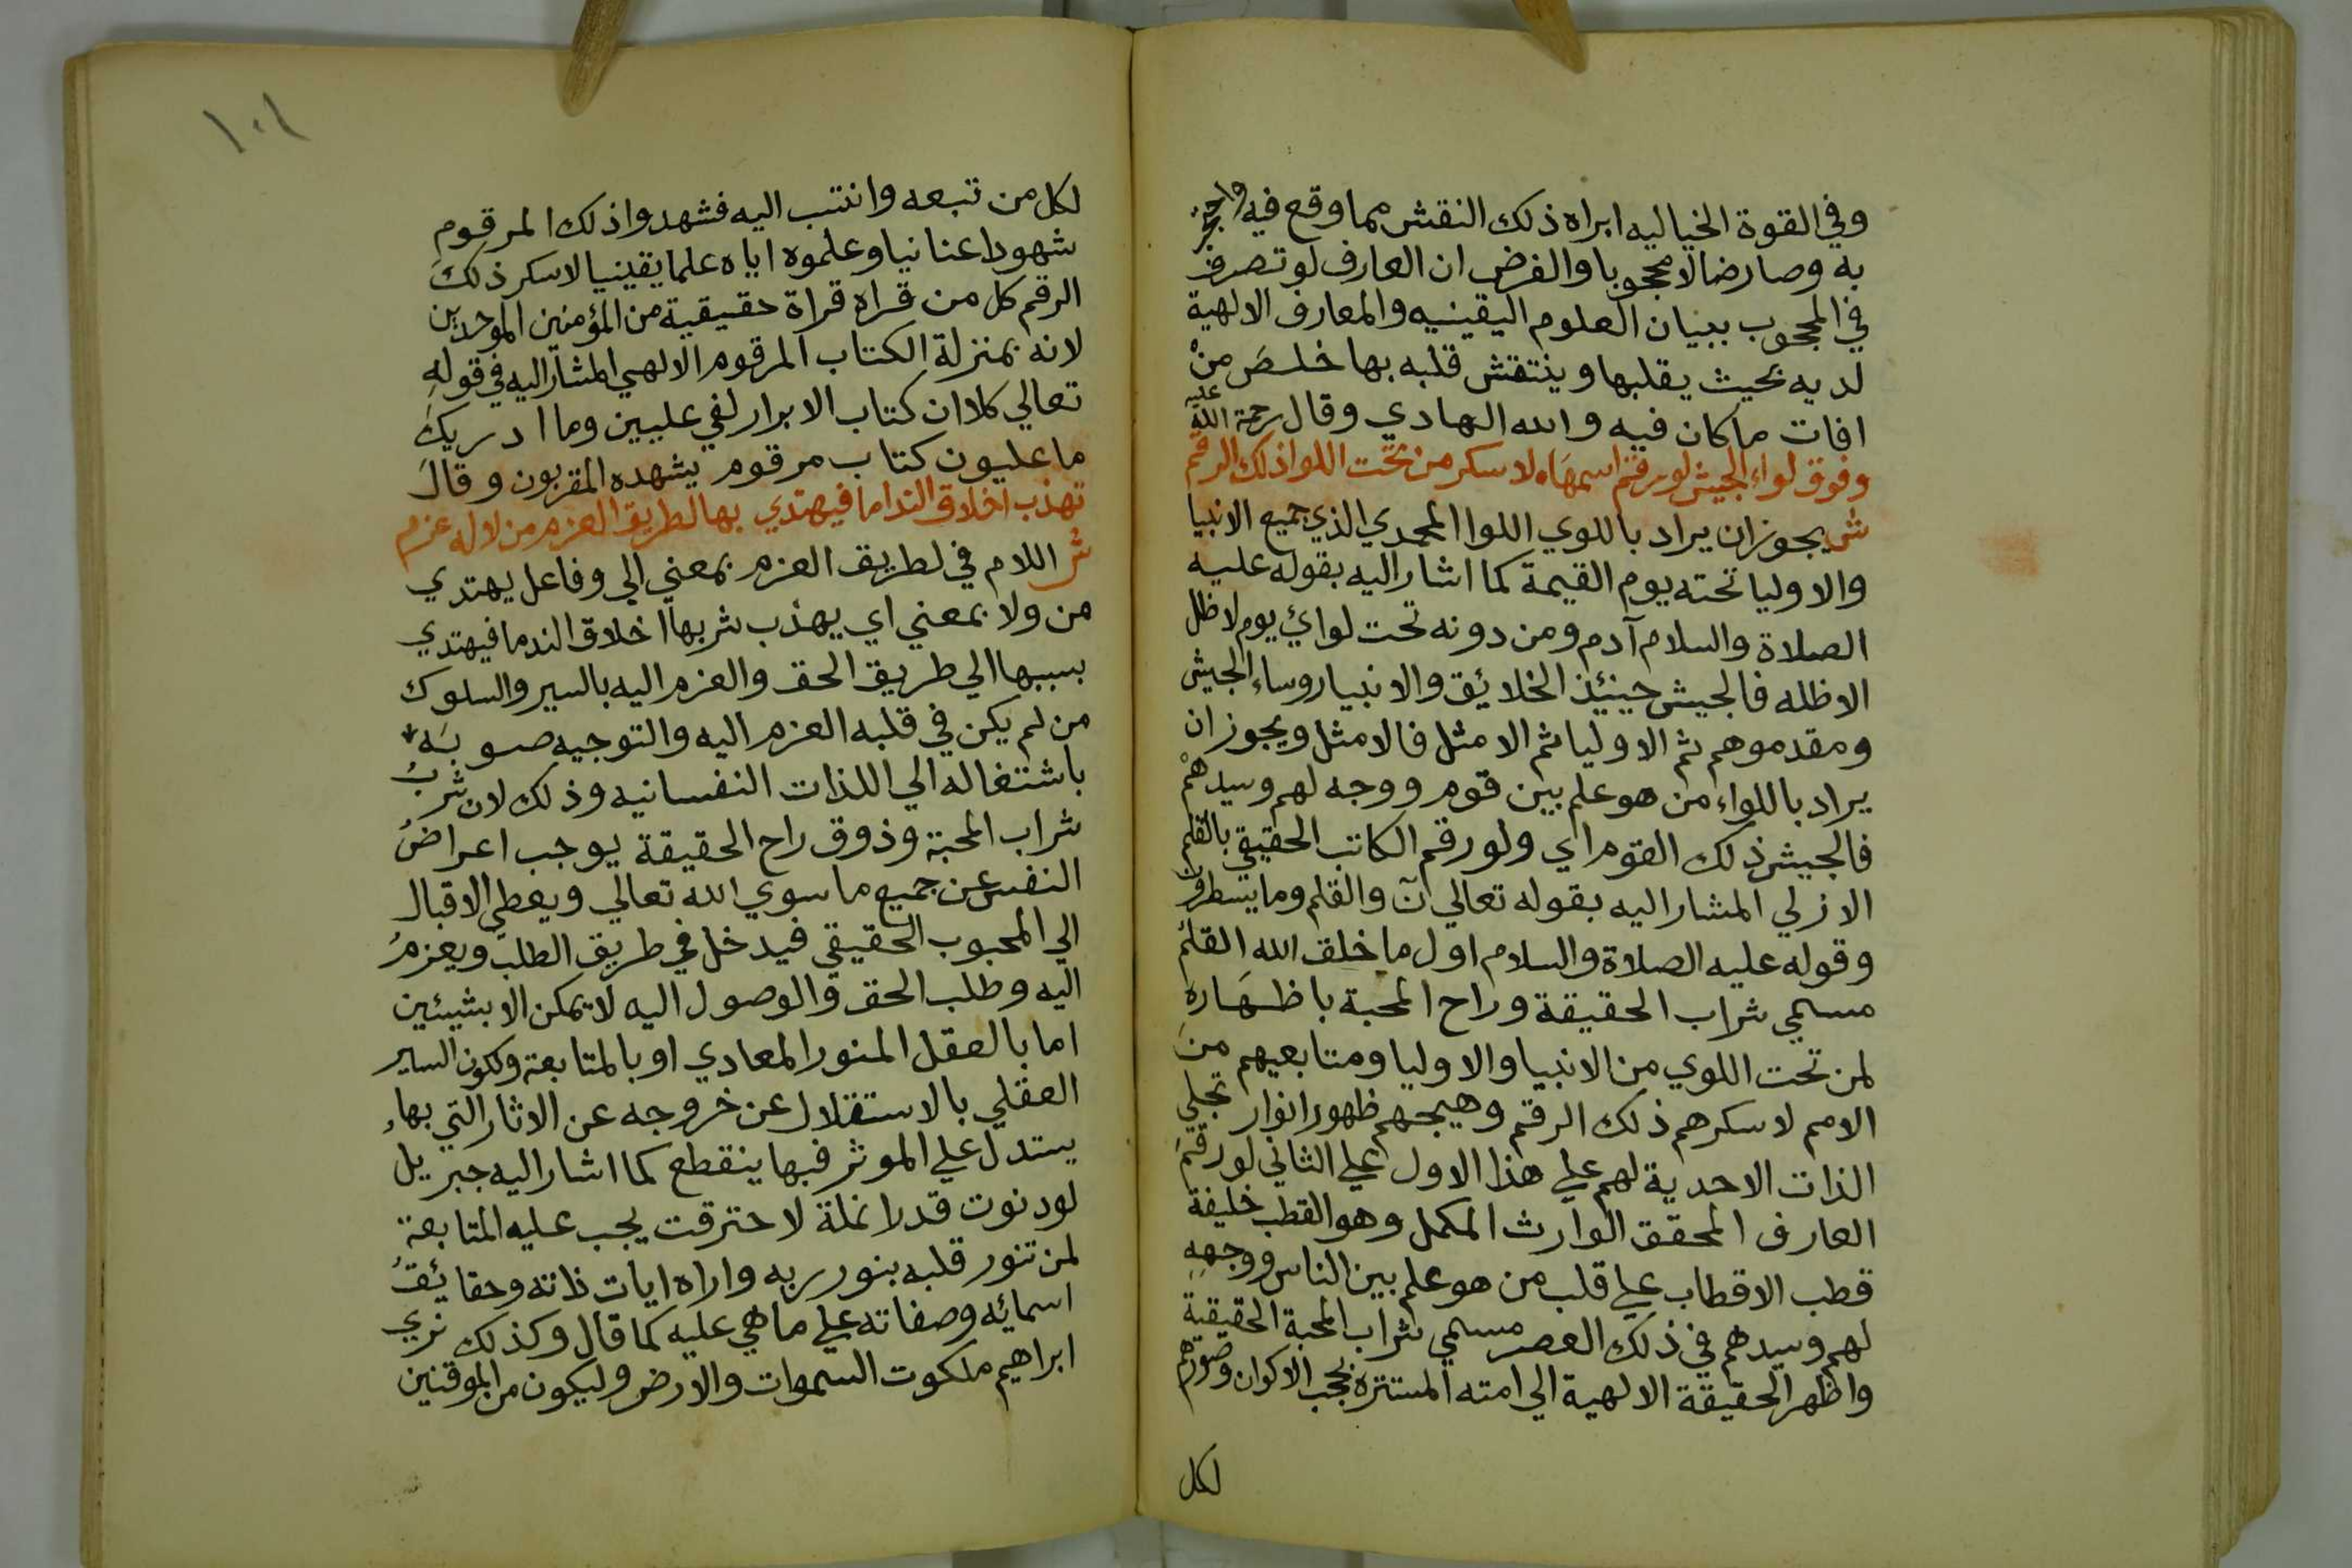 وفي القوة الخياليه ابراه ذلك النقش مما وقع فيه
به وصار ضالا محجوبا والفرض ان العارف لو تصرف
في المحجوب ببيان العلوم اليقينيه والمعارف الالهية
لديه بحيث يقلبها وينتقش قلبه بها خلص من
افات ما كان فيه والله الهادي وقال رحمة الله عليه
وفوق لواء الجيش لو رقم اسمها لاسكر من تحت اللوا ذلك الرقم
ش يجوز ان يراد باللوي اللوا المحمدي الذي جميع الانبيا
والاوليا تحته يوم القيمة كما اشار اليه بقوله عليه
الصلاة والسلام آدم ومن دونه تحت لوائي يوم لا ظل
الا ظله فالجيش حينئذ الخلائق والانبيا روساء الجيش
ومقدموهم ثم الاوليا ثم الامثل فالامثل ويجوز ان
يراد باللواء من هو علم بين قوم ووجه لهم وسيدهم
فالجيش ذلك القوم اي ولو رقم الكاتب الحقيقي بالقلم
الازلي المشار اليه بقوله تعالي ن والقلم وما يسطرون
وقوله عليه الصلاة والسلام اول ما خلق الله القلم
مسمي شراب الحقيقة وراح المحبة باظهاره
لمن تحت اللوي من الانبيا والاوليا ومتابعيهم من
الامم لاسكرهم ذلك الرقم وهيجهم ظهور انوار تجلي
الذات الاحدية لهم علي هذا الاول علي الثاني لو رقم
العارف المحقق الوارث المكمل وهو القطب خليفة
قطب الاقطاب علي قلب من هو علم بين الناس ووجهه
لهم وسيدهم في ذلك العصر مسمي شراب المحبة الحقيقية
واظهر الحقيقة الالهية الي امته المستترة بحجب الاكوان وصورهم
لكل
١٠١
لكل من تبعه وانتسب اليه فشهدوا ذلك المرقوم
شهودا عنانيا وعلموه اياه علما يقينيا لاسكر ذلك
الرقم كل من قراه قراة حقيقية من المؤمنين الموحدين
لانه بمنزلة الكتاب المرقوم الالهي المشار اليه في قوله
تعالي كلا ان كتاب الابرار لفي عليين وما ادريك
ما عليون كتاب مرقوم يشهده المقربون وقال
تهذب اخلاق النداما فيهتدي بها لطريق العزم من لا له عزم
ش اللام في لطريق العزم بمعني الي وفاعل يهتدي
من ولا بمعني اي يهذب شربها اخلاق الندما فيهتدي
بسببها الي طريق الحق والعزم اليه بالسير والسلوك
من لم يكن في قلبه العزم اليه والتوجيه صوبه
باشتغاله الي اللذات النفسانيه وذلك لان شرب
شراب المحبة وذوق راح الحقيقة يوجب اعراض
النفس عن جميع ما سوي الله تعالي ويعطي الاقبال
الي المحبوب الحقيقي فيدخل في طريق الطلب ويعزم
اليه وطلب الحق والوصول اليه لا يمكن الا بشيئين
اما بالعقل المنور المعادي او بالمتابعة ولكون السير
العقلي بالاستقلال عن خروجه عن الاثار التي بها
يستدل علي الموثر فبها ينقطع كما اشار اليه جبريل
لو دنوت قدر انملة لاحترقت يجب عليه المتابعة
لمن تنور قلبه بنور ربه واراه ايات ذاته وحقايق
اسمائه وصفاته علي ما هي عليه كما قال وكذلك نري
ابراهيم ملكوت السموات والارض وليكون من الموقنين